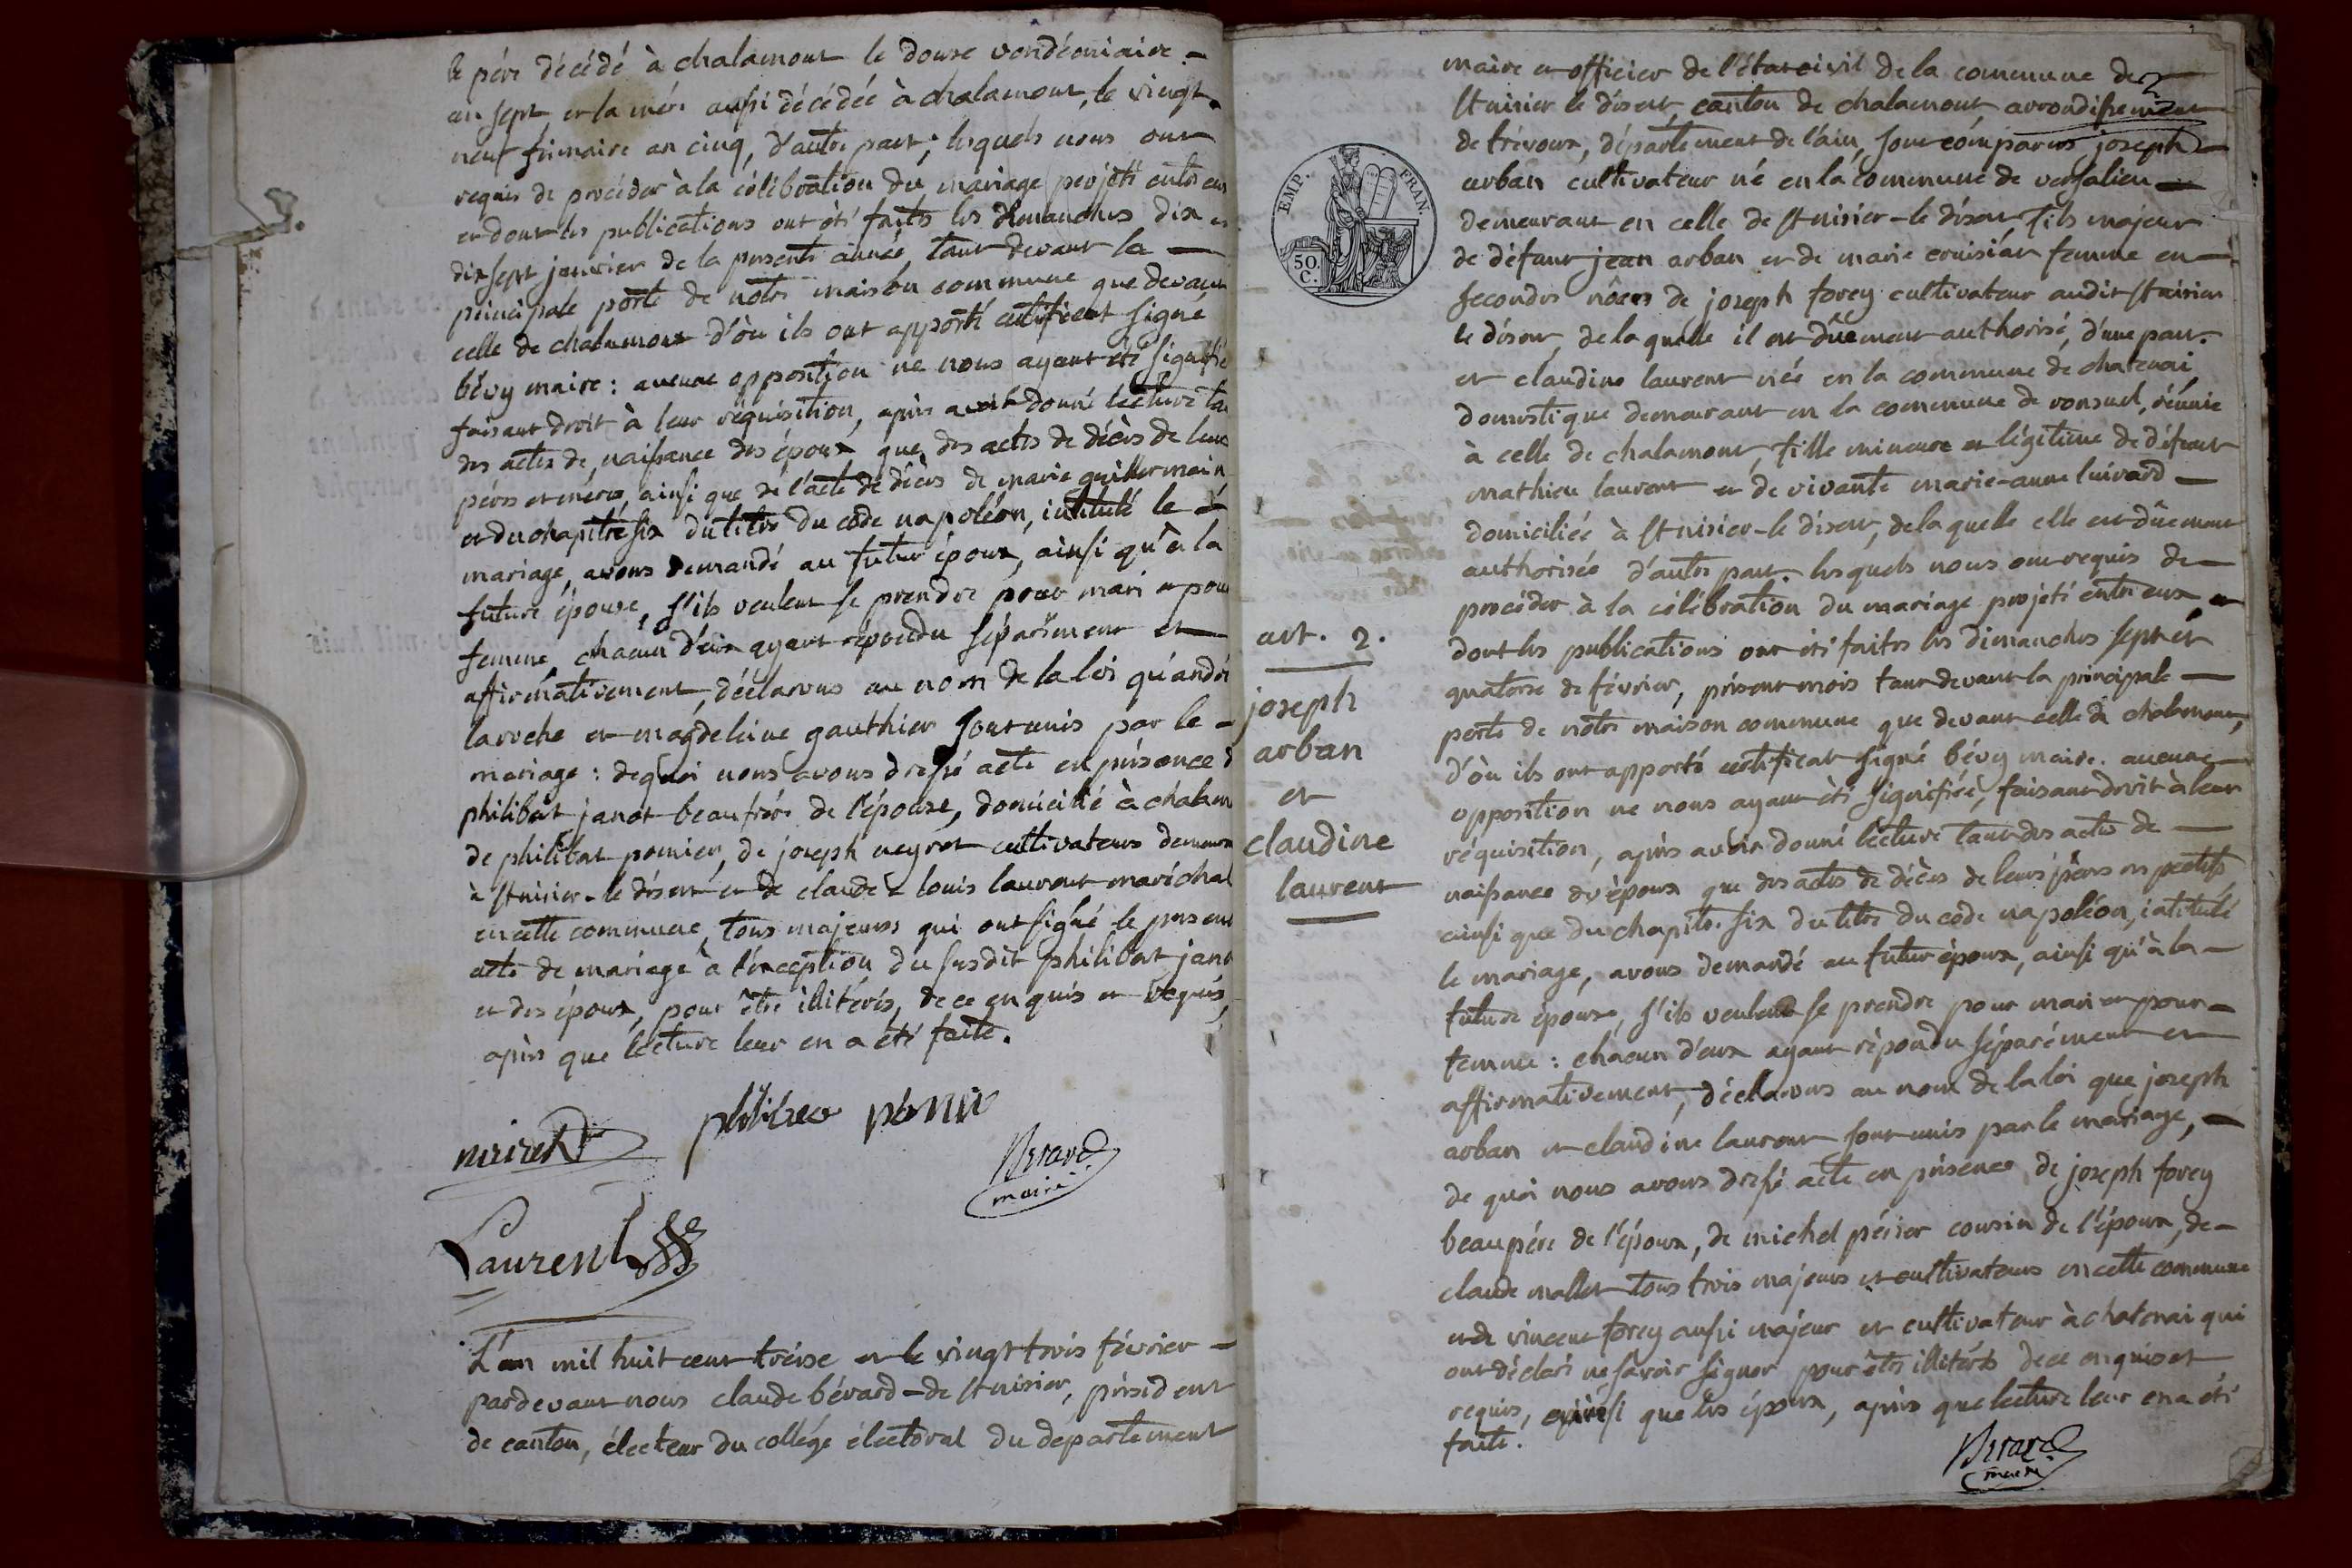 le pére décédé à chalamont le douze vendémiaire -
an sept et la mére aussi décédée à chalamont, le vingt
neuf frimaire an cinq, d'autre part; lesquels nous ont
requis de procéder à la célébration du mariage projeté entre eux
et dont les publications ont été faites les dimanches dix et
dix sept janvier de la présente année, tant devant la -
principale porte de notre maison commune que devant
celle de chalamont d'où ils ont apporté certificat signé
bévy maire: aucune opposition ne nous ayant été signifiée
faisant droit à leur réquisition, après avoir donné lecture tant
des actes de naissance des époux que des actes de décès de leurs
péres et méres, ainsi que de l'acte de décès de marie guillermain
et du chapitre six du titre du code napoléon, intitulé le -
mariage, avons demandé au futur époux, ainsi qu'à la
future épouse, s'ils veulent se prendre pour mari et pour
femme, chacun d'eux ayant répondu séparément et -
affirmativement, déclarons au nom de la loi qu'andré
laroche et magdeleine gauthier sont unis par le -
mariage: de quoi nous avons dressé acte en présence d
philibert janot beaufrére de l'épouse, domicilié à chalam
de philibert pomier, de joseph neyret cultivateurs demeura
à st nisier-le désert et de claude louis laurent maréchal
en cette commune, tous majeurs qui ont signé le present
acte de mariage à l'exception du susdit philibert janot
et des époux, pour être illitérés, de ce enquis et requis,
après que lecture leur en a été faite.
philiber pomie
Bérard
maire
Laurent
L'an mil huit cent tréise et le vingt trois février -
pardevant nous claude bérard-de st nisier, président
de canton, électeur du collége électoral du département
EMP. FRAN.
50 C.
art. 2.
joseph
arban
et
claudine
laurent
2
maire et officier de l'état civil de la commune de
st nisier le désert, canton de chalamont arrondissement
de trévoux, département de l'ain, sont comparus joseph -
arban cultivateur né en la commune de versalieu -
demeurant en celle de st nisier-le désert fils majeur
de défunt jean arban et de marie cruisiat femme en -
secondes nôces de joseph forey cultivateur audit st nisier
le désert, de laquelle il est dûement authorisé, d'une part.
et claudine laurent née en la commune de chatenai
domestique demeurant en la commune de ronsuel, réunie
à celle de chalamont, fille mineure et légitime de défunt
mathieu laurent et de vivante marie-anne luivard -
domiciliée à st nisier-le désert, de laquelle elle est dûement
authorisée d'autre part. lesquels nous ont requis de -
procéder à la célébration du mariage projeté entre eux, et
dont les publications ont été faites les dimanches sept et
quatorse de février, présent mois tant devant la principale -
porte de notre maison commune que devant celle de chalamont,
d'où ils ont apporté certificat signé bévy maire. aucune -
opposition ne nous ayant été signifiée, faisant droit à leur
réquisition, après avoir donné lecture tant des actes de -
naissance des époux que des actes de décès de leurs péres respectifs
ainsi que du chapitre six du titre du code napoléon, intitulé
le mariage, avons demandé au futur époux, ainsi qu'à la -
future épouse, s'ils veulent se prendre pour mari et pour -
femme: chacun d'eux ayant répondu séparément et
affirmativement, déclarons au nom de la loi que joseph
arban et claudine laurent sont unis par le mariage, -
de quoi nous avons dressé acte en présence de joseph forey
beaupére de l'époux, de michel périer cousin de l'époux, de -
claude mallet tous trois majeurs et cultivateurs en cette commune
et de vincent forey aussi majeur et cultivateur à chatenai qui
ont déclaré ne savoir signer pour être illitérés de ce enquis et
requis, ainsi que les époux, après que lecture leur en a été
faite.
Bérard
maire